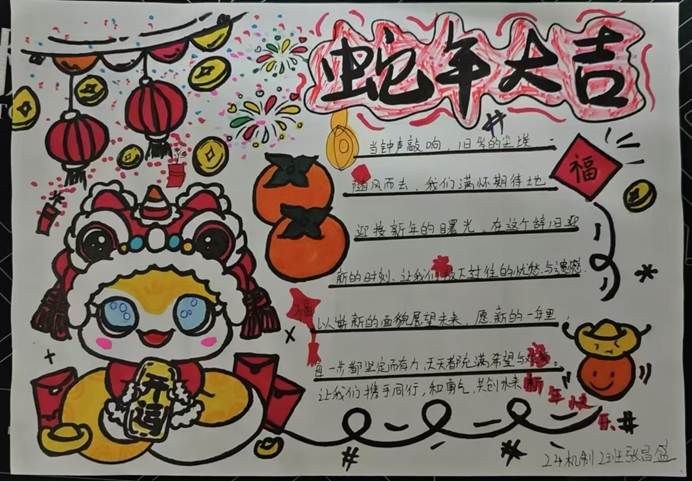 蛇年大吉
当钟声敲响，旧年的尘埃
随风而去，我们满怀期待地
福
迎接新年的曙光，在这个辞旧迎
新的时刻，让我们放下过往的忧愁与遗憾
以崭新的面貌展望未来，愿新的一年里，
每一步都坚定而有力，天天都充满希望与
让我们携手同行，和勇气，共创未来新年快乐
开福
24机制2班张昌盛